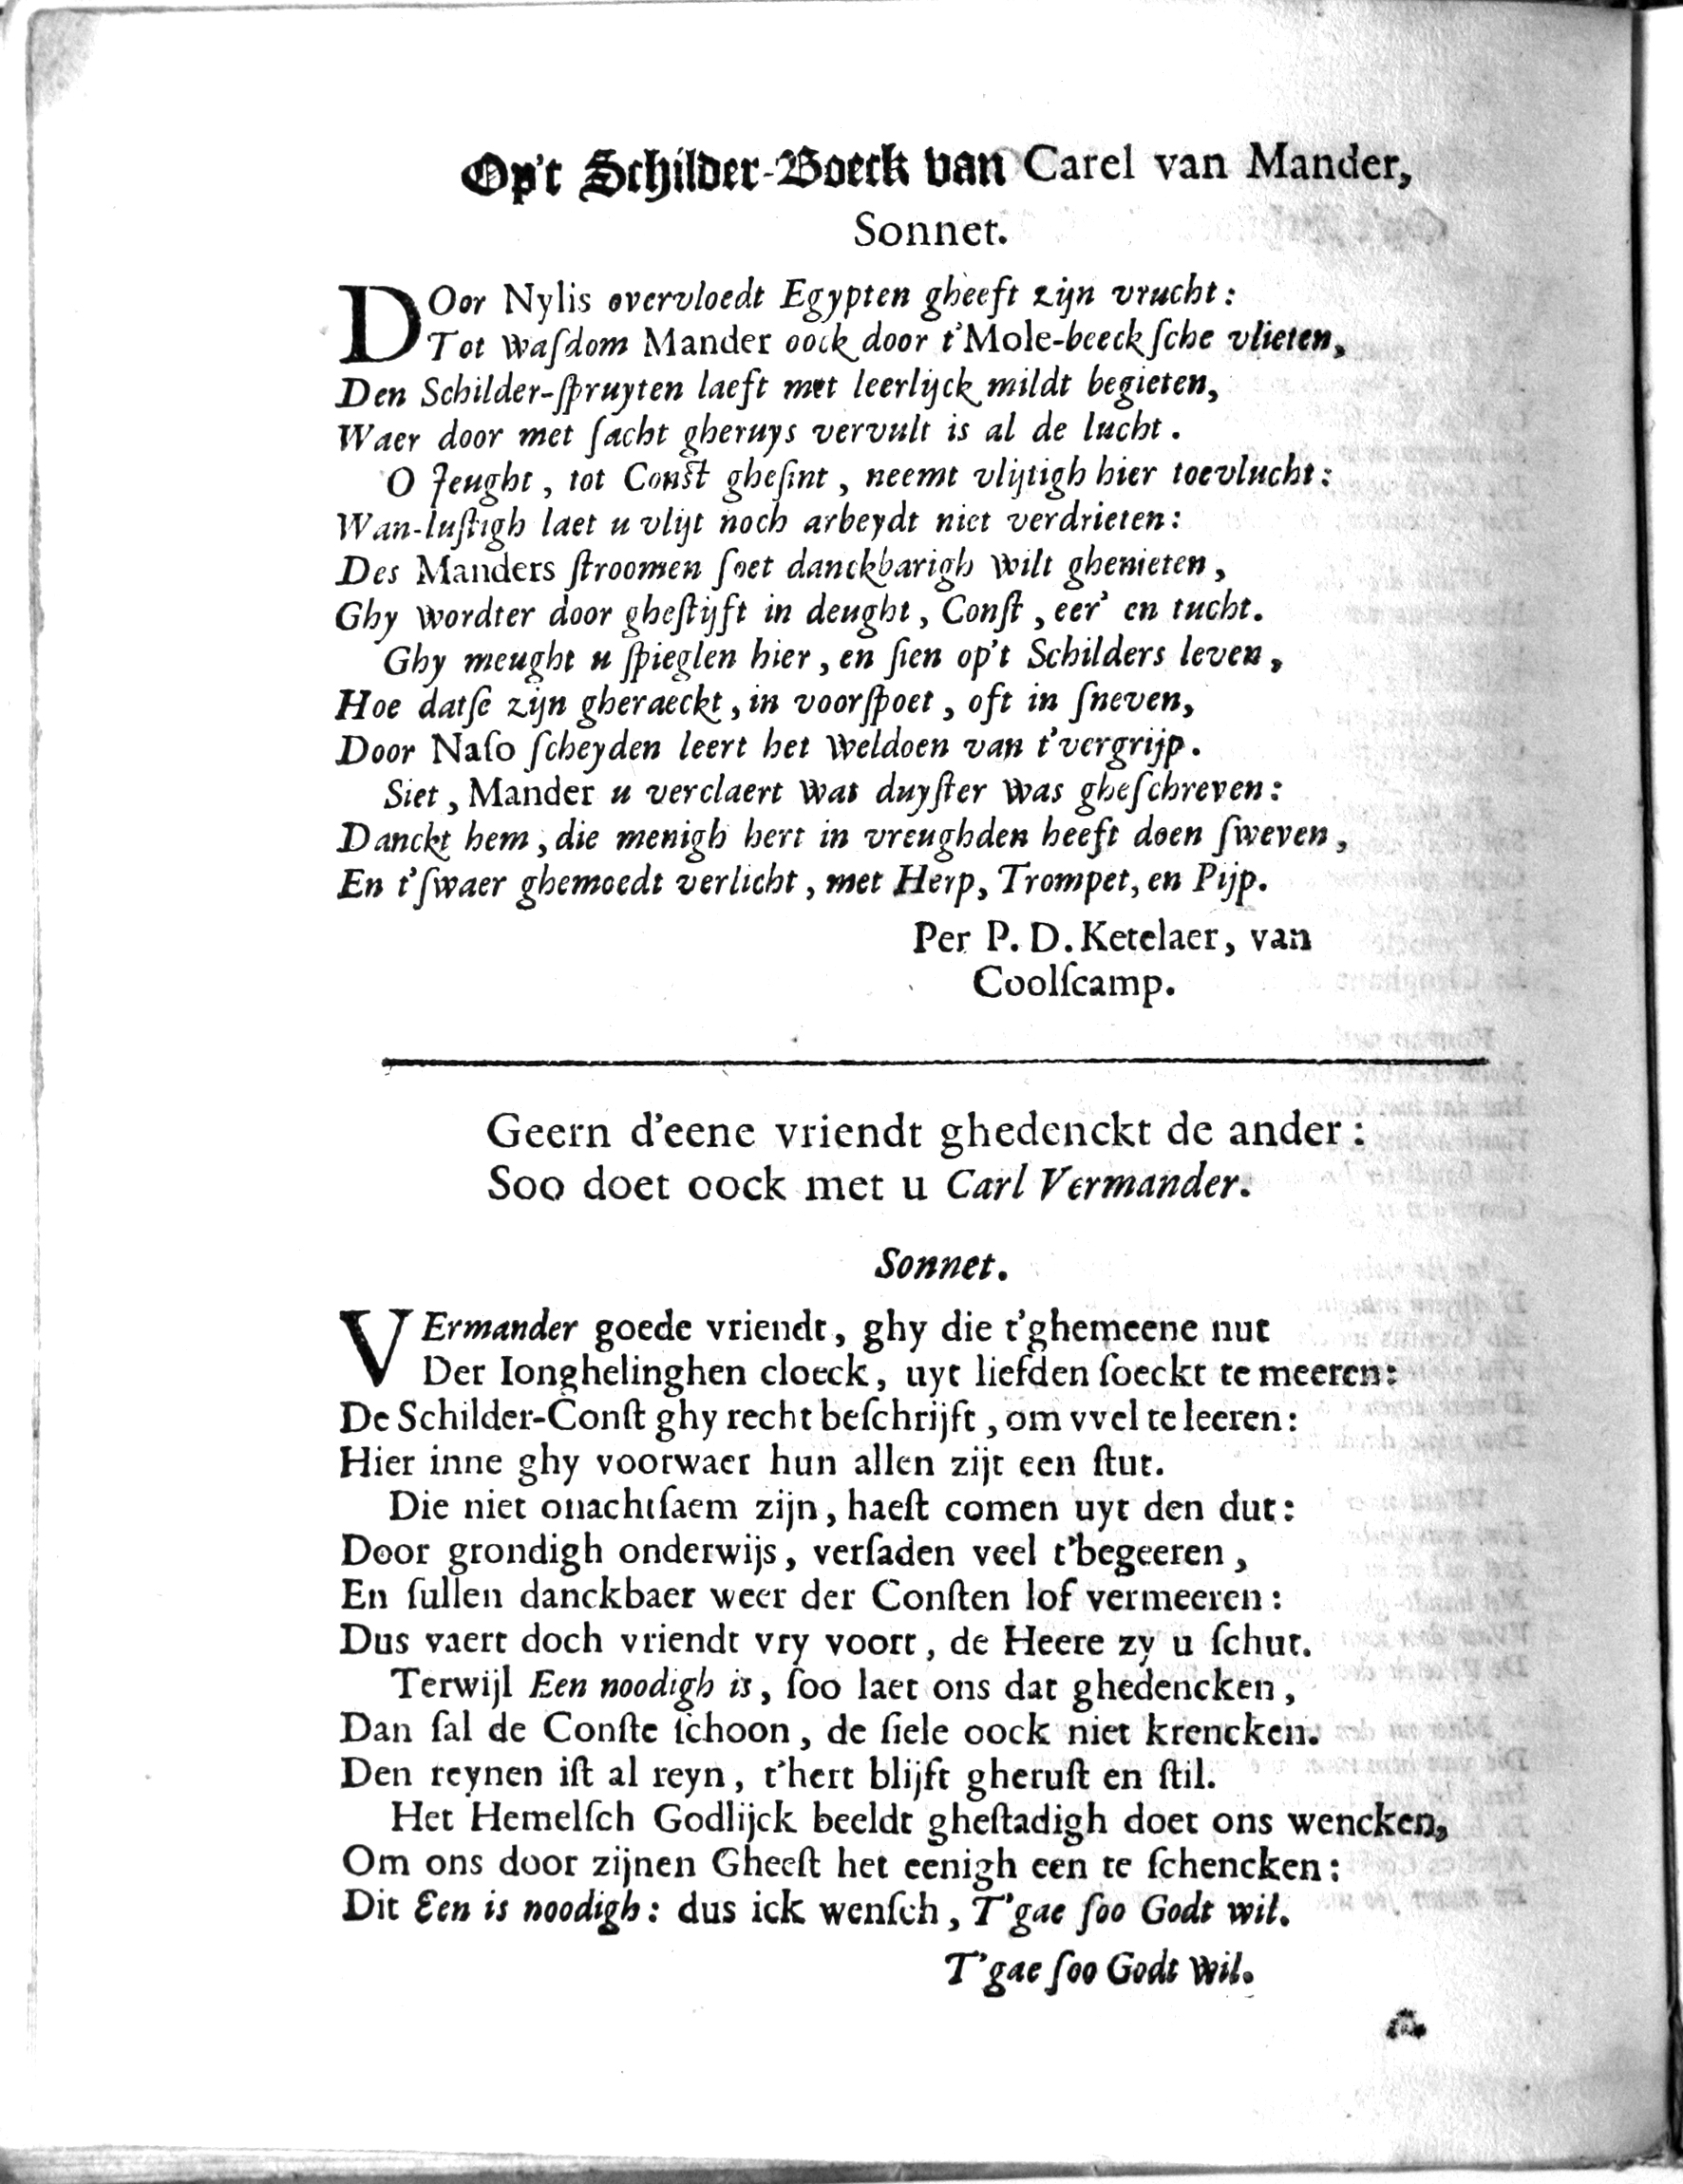 Op't Schilder-Boeck van Carel van Mander,
Sonnet.
DOor Nylis overvloedt Egypten gheeft zijn vrucht:
Tot waſdom Mander oock door t'Mole-beeckſche vlieten,
Den Schilder-ſpruyten laeft met leerlijck mildt begieten,
Waer door met ſacht gheruys vervult is al de lucht.
O Jeught, tot Conſt gheſint, neemt vlijtigh hier toevlucht:
Wan-luſtigh laet u vlijt noch arbeydt niet verdrieten:
Des Manders ſtroomen ſoet danckbarigh wilt ghenieten,
Ghy wordter door gheſtijft in deught, Conſt, eer' en tucht.
Ghy meught u ſpieglen hier, en ſien op't Schilders leven,
Hoe datſe zijn gheraeckt, in voorſpoet, oft in ſneven,
Door Naſo ſcheyden leert het weldoen van t'vergrijp.
Siet, Mander u verclaert wat duyſter was gheſchreven:
Danckt hem, die menigh hert in vreughden heeft doen ſweven,
En t'ſwaer ghemoedt verlicht, met Herp, Trompet, en Pijp.
Per P. D. Ketelaer, van
Coolſcamp.
Geern d'eene vriendt ghedenckt de ander:
Soo doet oock met u Carl Vermander.
Sonnet.
VErmander goede vriendt, ghy die t'ghemeene nut
Der Ionghelinghen cloeck, uyt liefden ſoeckt te meeren:
De Schilder-Conſt ghy recht beſchrijft, om vvel te leeren:
Hier inne ghy voorwaer hun allen zijt een ſtut.
Die niet onachtſaem zijn, haeſt comen uyt den dut:
Door grondigh onderwijs, verſaden veel t'begeeren,
En ſullen danckbaer weer der Conſten lof vermeeren:
Dus vaert doch vriendt vry voort, de Heere zy u ſchut.
Terwijl Een noodigh is, ſoo laet ons dat ghedencken,
Dan ſal de Conſte ſchoon, de ſiele oock niet krencken.
Den reynen iſt al reyn, t'hert blijft gheruſt en ſtil.
Het Hemelſch Godlijck beeldt gheſtadigh doet ons wencken,
Om ons door zijnen Gheeſt het eenigh een te ſchencken:
Dit Een is noodigh: dus ick wenſch, T'gae ſoo Godt wil.
T'gae ſoo Godt wil.